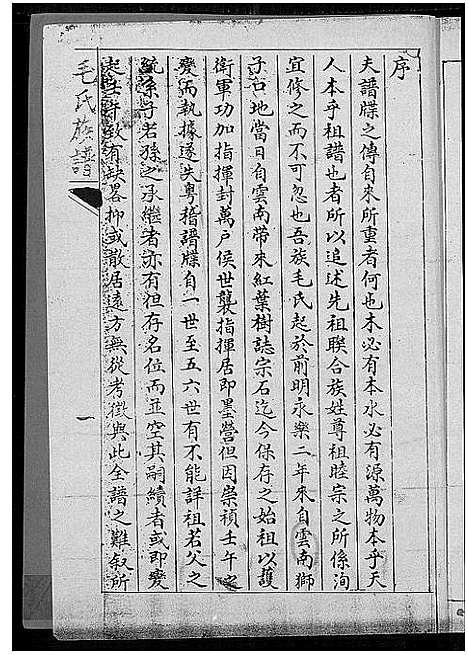 序
夫譜牒之傳自來所重者何也木必有本水必有源萬物本乎天
人本乎祖譜也者所以追述先祖聯合族姓尊祖睦宗之所係洵
宜修之而不可忽也吾族毛氏起於前明永樂二年來自雲南獅
子口地當日自雲南帶來紅葉樹誌宗石迄今保存之始祖以護
衛軍功加指揮封萬户侯世襲指揮居即墨營但因崇禎壬午之
變而執據遂失粵稽譜牒自一世至五六世有不能詳祖若父之
孫子若孫之承繼者亦有但存名位而並空其嗣續者或即變
有缺畧抑或散居遠方無從考徵與此全譜之難叙所
毛氏族譜
一